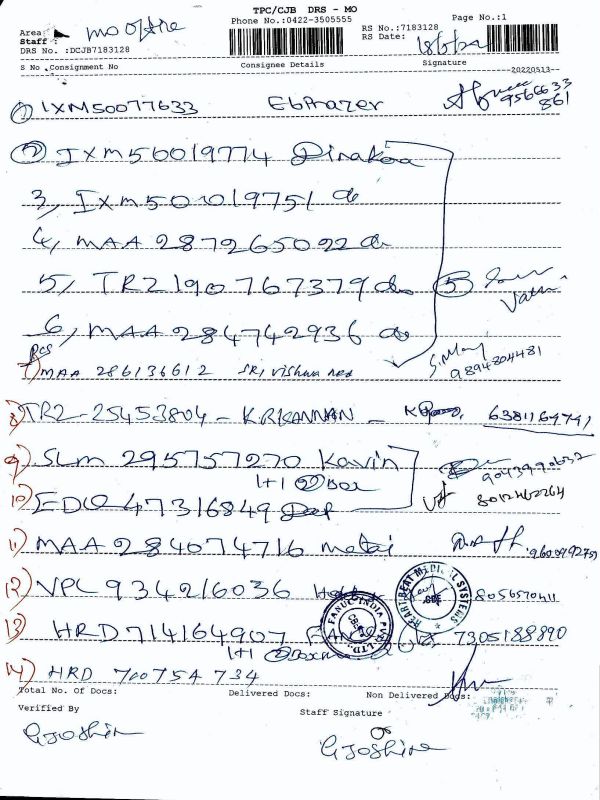 TPC/CJB DRS - MO
Phone No.:0422-3505555
Page No.:1
Area : mo office
Staff :
RS No.:7183128
RS Date: 18/5/22
DRS No. :DCJB7183128
S No Consignment No Consignee Details Signature
20220513
1) IXM50077633 Ebnazer 9566633
861
2) IXM56019774 Dinakaa
3, IXM501019751 do
4, MAA 287265022 do
5, TRZ 190767379 do 5
6, MAA 284742936 do
Pcs
7) MAA 286136612 SRI Vishwa S.May
9894804481
8) TRZ-25453804 - K.R.KANNAN - 6381164741
9) SLM 295757270 Kavin 9043990632
1+1 2 Box
10) EDO 47316849 8012462264
11) MAA 284074716 9600992759
12) VPL 934216036 8056570411
HEART BEAT MEDICAL SYSTEMS
CBE
13) HRD714164907 FANUC 7305188890
FANUC INDIA PVT. LTD.
CBE
1+1 2 Box
14) HRD 700754 734
Total No. Of Docs: Delivered Docs: Non Delivered Docs:
Verified By Staff Signature
G Joshin
G Joshine